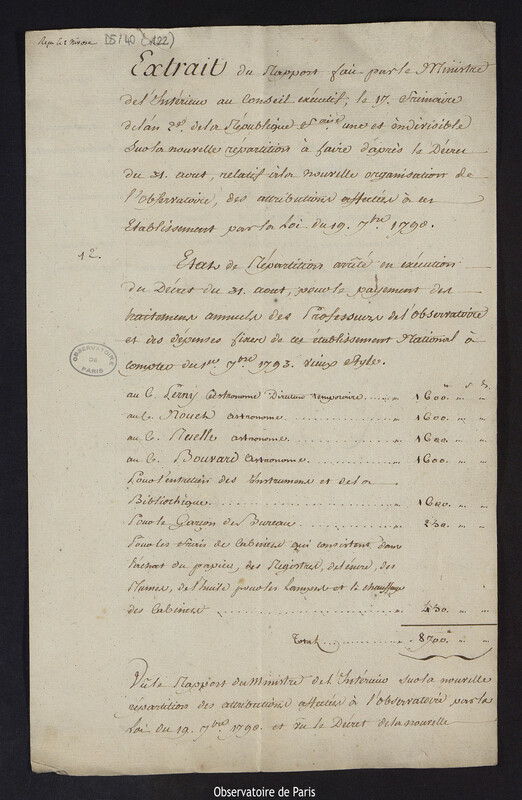 Reçu le 2 Nivose D5/40 (122)
Extrait du Rapport fait par le Ministre
de l'Intérieur au Conseil exécutif, le 17. Frimaire
de l'an 2.e de la République f.caise une et indivisible
sur la nouvelle répartition à faire d'après le Décret
du 31. aout, relatif à la nouvelle organisation de
l'Observatoire, des attributions affectées à cet
Etablissement par la Loi du 19. 7.bre 1790.
12.
Etat de Répartition arrêté en exécution
du Décret du 31. aout, pour le payement des
traitemens annuels des Professeurs de l'Observatoire
et des dépenses fixes de cet établissement National à
compter du 1er 7.bre 1793. vieux style.
OBSERVATOIRE DE PARIS
au C. Perny astronome Directeur temporaire ...... 1600. " "
au C. Nouet astronome ...... 1600. " "
au C. Ruelle astronome ...... 1600. " "
au C. Bouvard astronome ...... 1600. " "
Pour l'entretien des Instrumens et de la
Bibliothèque ...... 1600. " "
Pour le Garçon de Bureau ...... 250. " "
Pour les frais de Cabinet qui consistent dans
l'achat du papier, des Registres, de l'encre, des
Plumes, de l'huile pour les Lampes et le chauffage
des Cabinets ...... 450. " "
Total ...... 8700. " "
Vu le Rapport du Ministre de l'Intérieur sur la nouvelle
répartition des attributions affectées à l'observatoire par la
Loi du 19. 7.bre 1790. et vu le Décret de la nouvelle
Observatoire de Paris